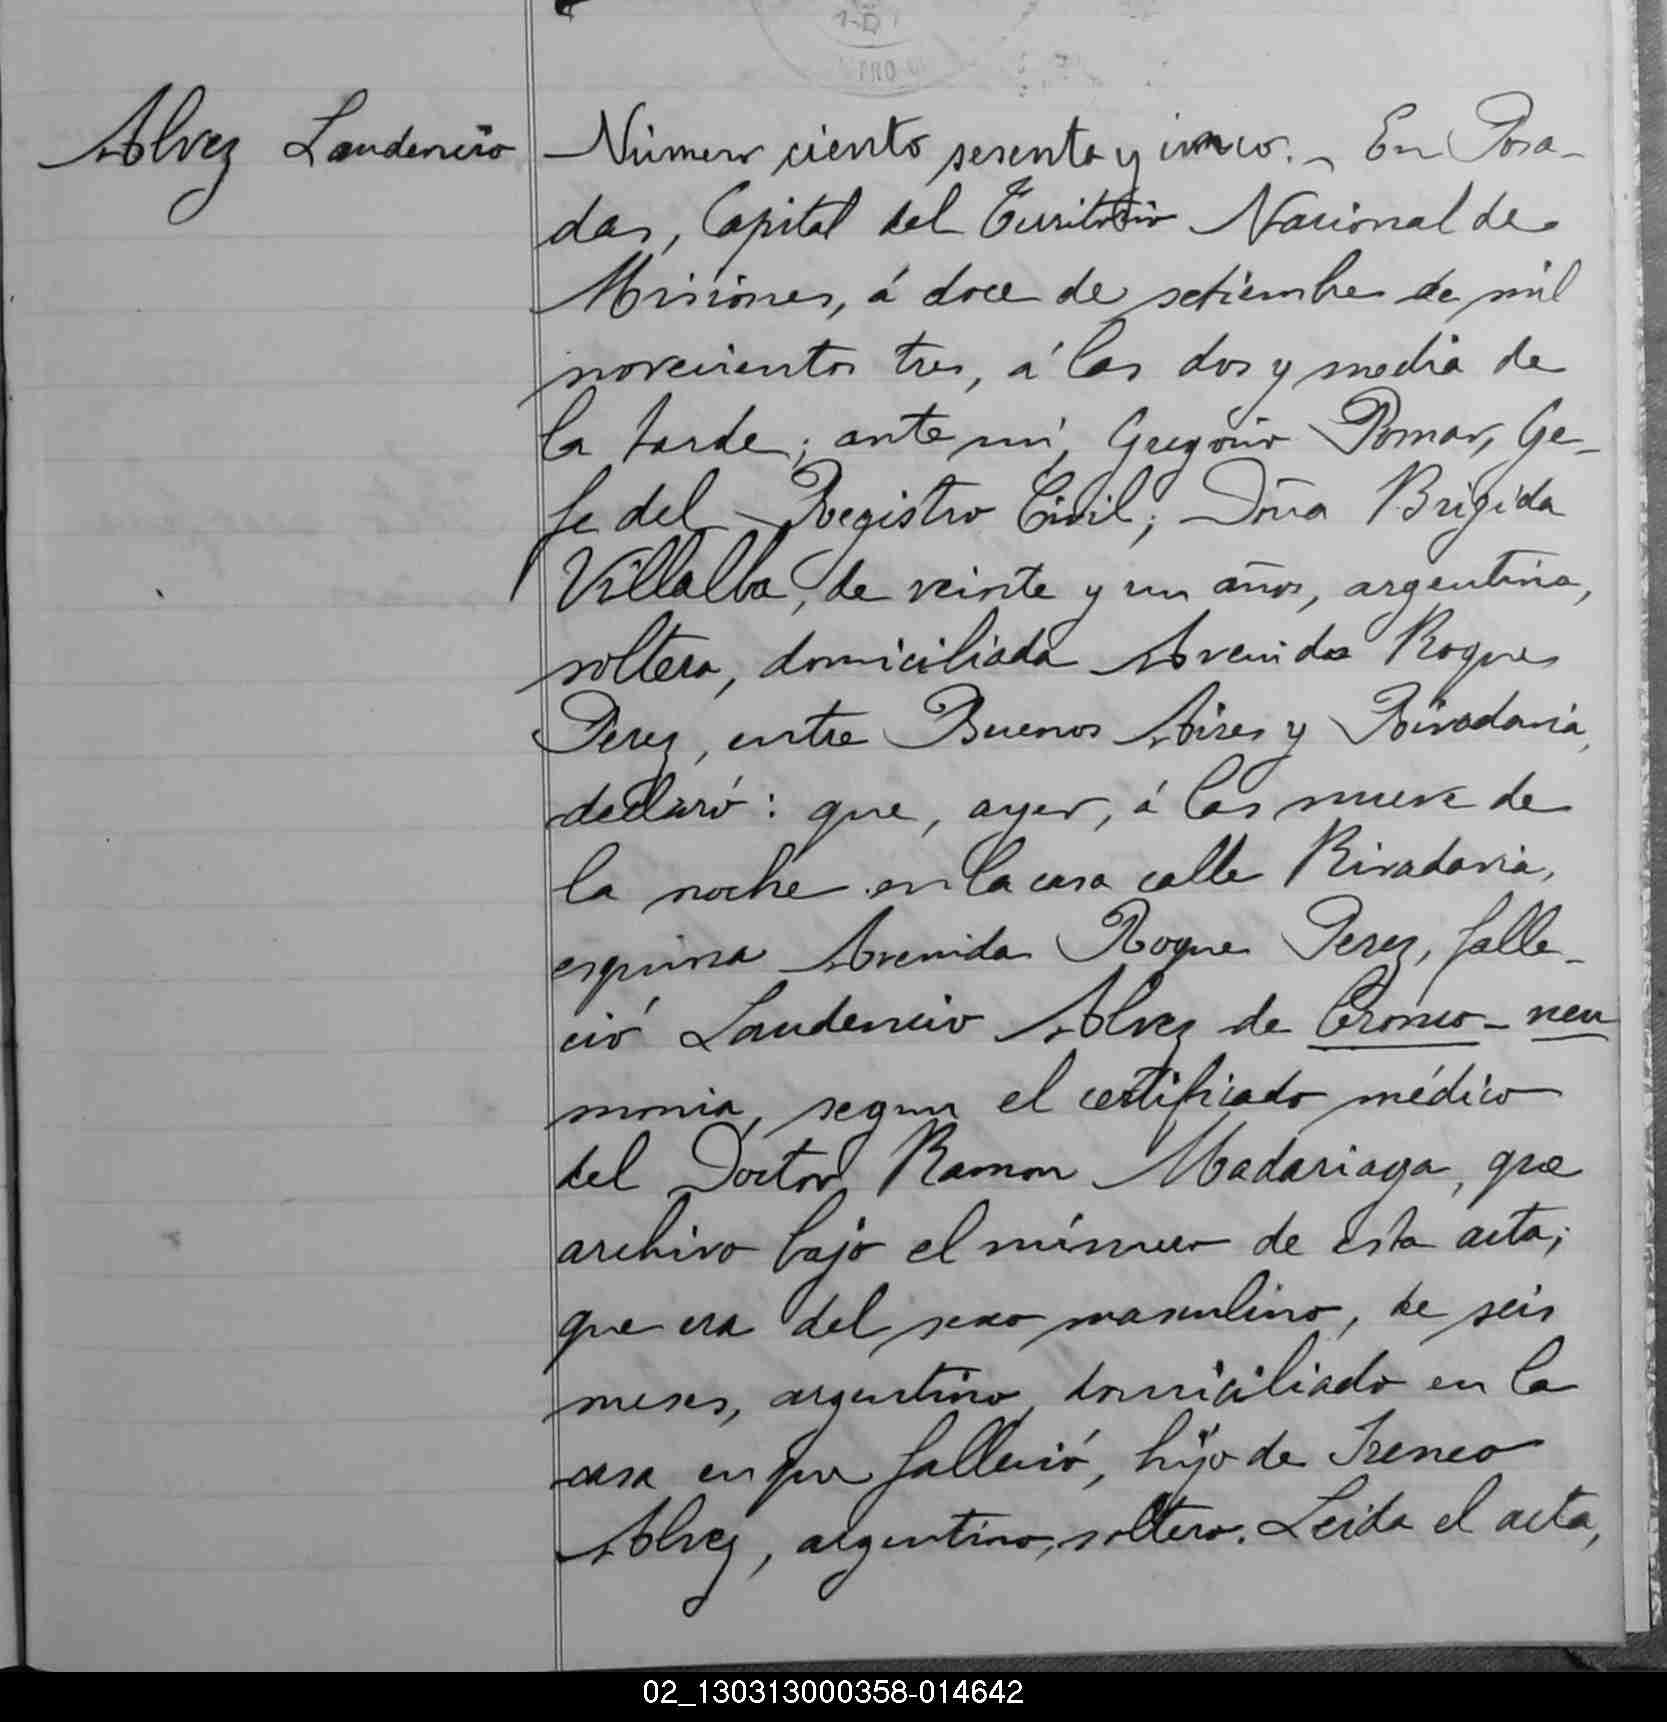 Alvez Laudencio
Número ciento sesenta y cinco. - En Posa-
das, Capital del Territorio Nacional de
Misiones, á doce de setiembre de mil
novecientos tres, á las dos y media de
la tarde; ante mi, Gregorio Pomar, Ge-
fe del Registro Civil; Doña Brigida
Villalba, de veinte y un años, argentina,
soltera, domiciliada Avenida Roque
Perez, entre Buenos Aires y Rivadavia,
declaró: que, ayer, á las nueve de
la noche en la casa calle Rivadavia,
esquina Avenida Roque Perez, falle-
ció Laudencio Alvez de Bronco-neu
monia, segun el certificado médico
del Doctor Ramon Madariaga, que
archivo bajo el número de esta acta;
que era del sexo masculino, de seis
meses, argentino, domiciliado en la
casa en que falleció, hijo de Ireneo
Alvez, argentino, soltero. Leida el acta,
02_130313000358-014642